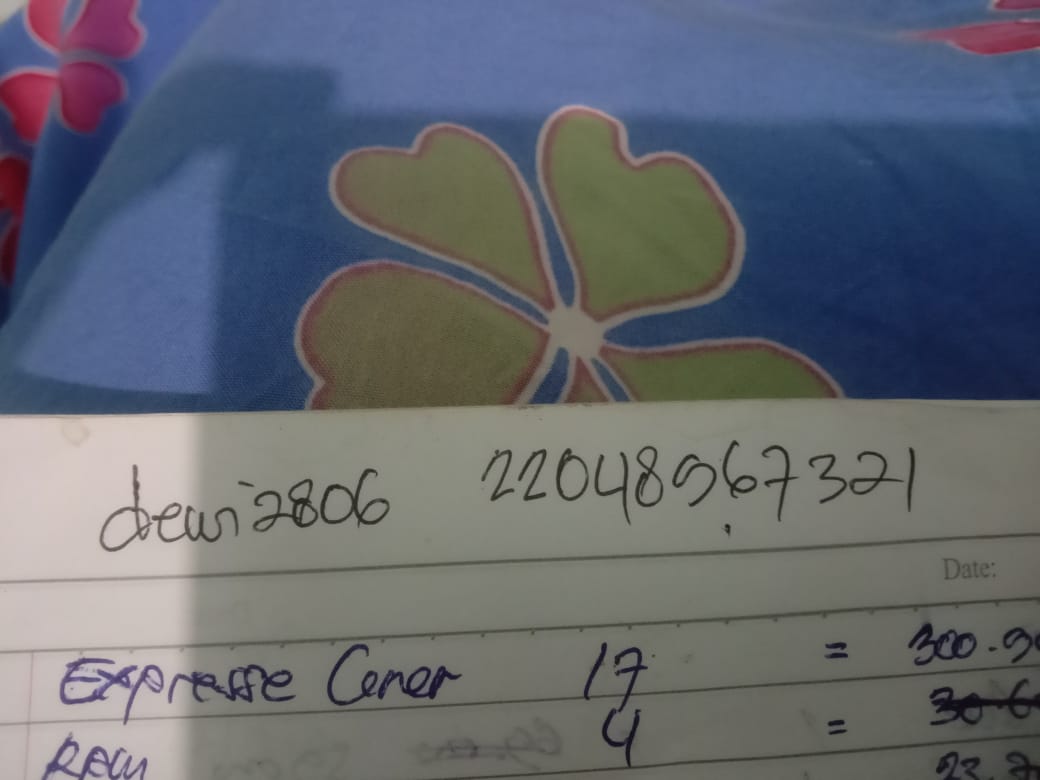 dewi2806 22048967321
Date:
Expresse Cener 17 = 300.9
4 =